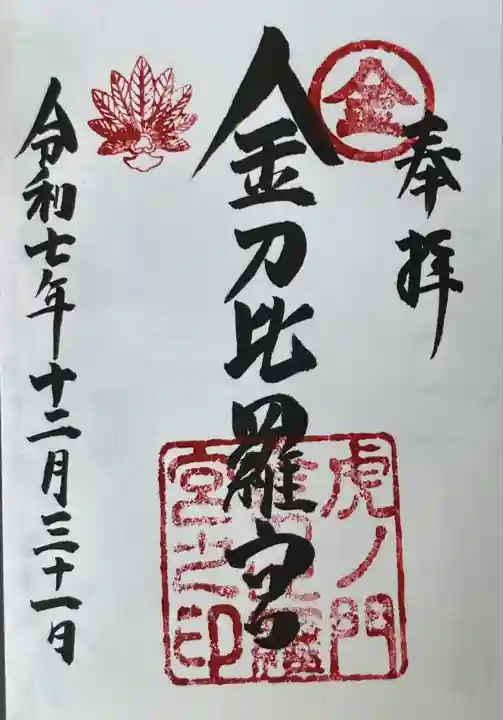 奉拝
金
金刀比羅宮
虎ノ門
宮之印
令和七年十二月三十一日